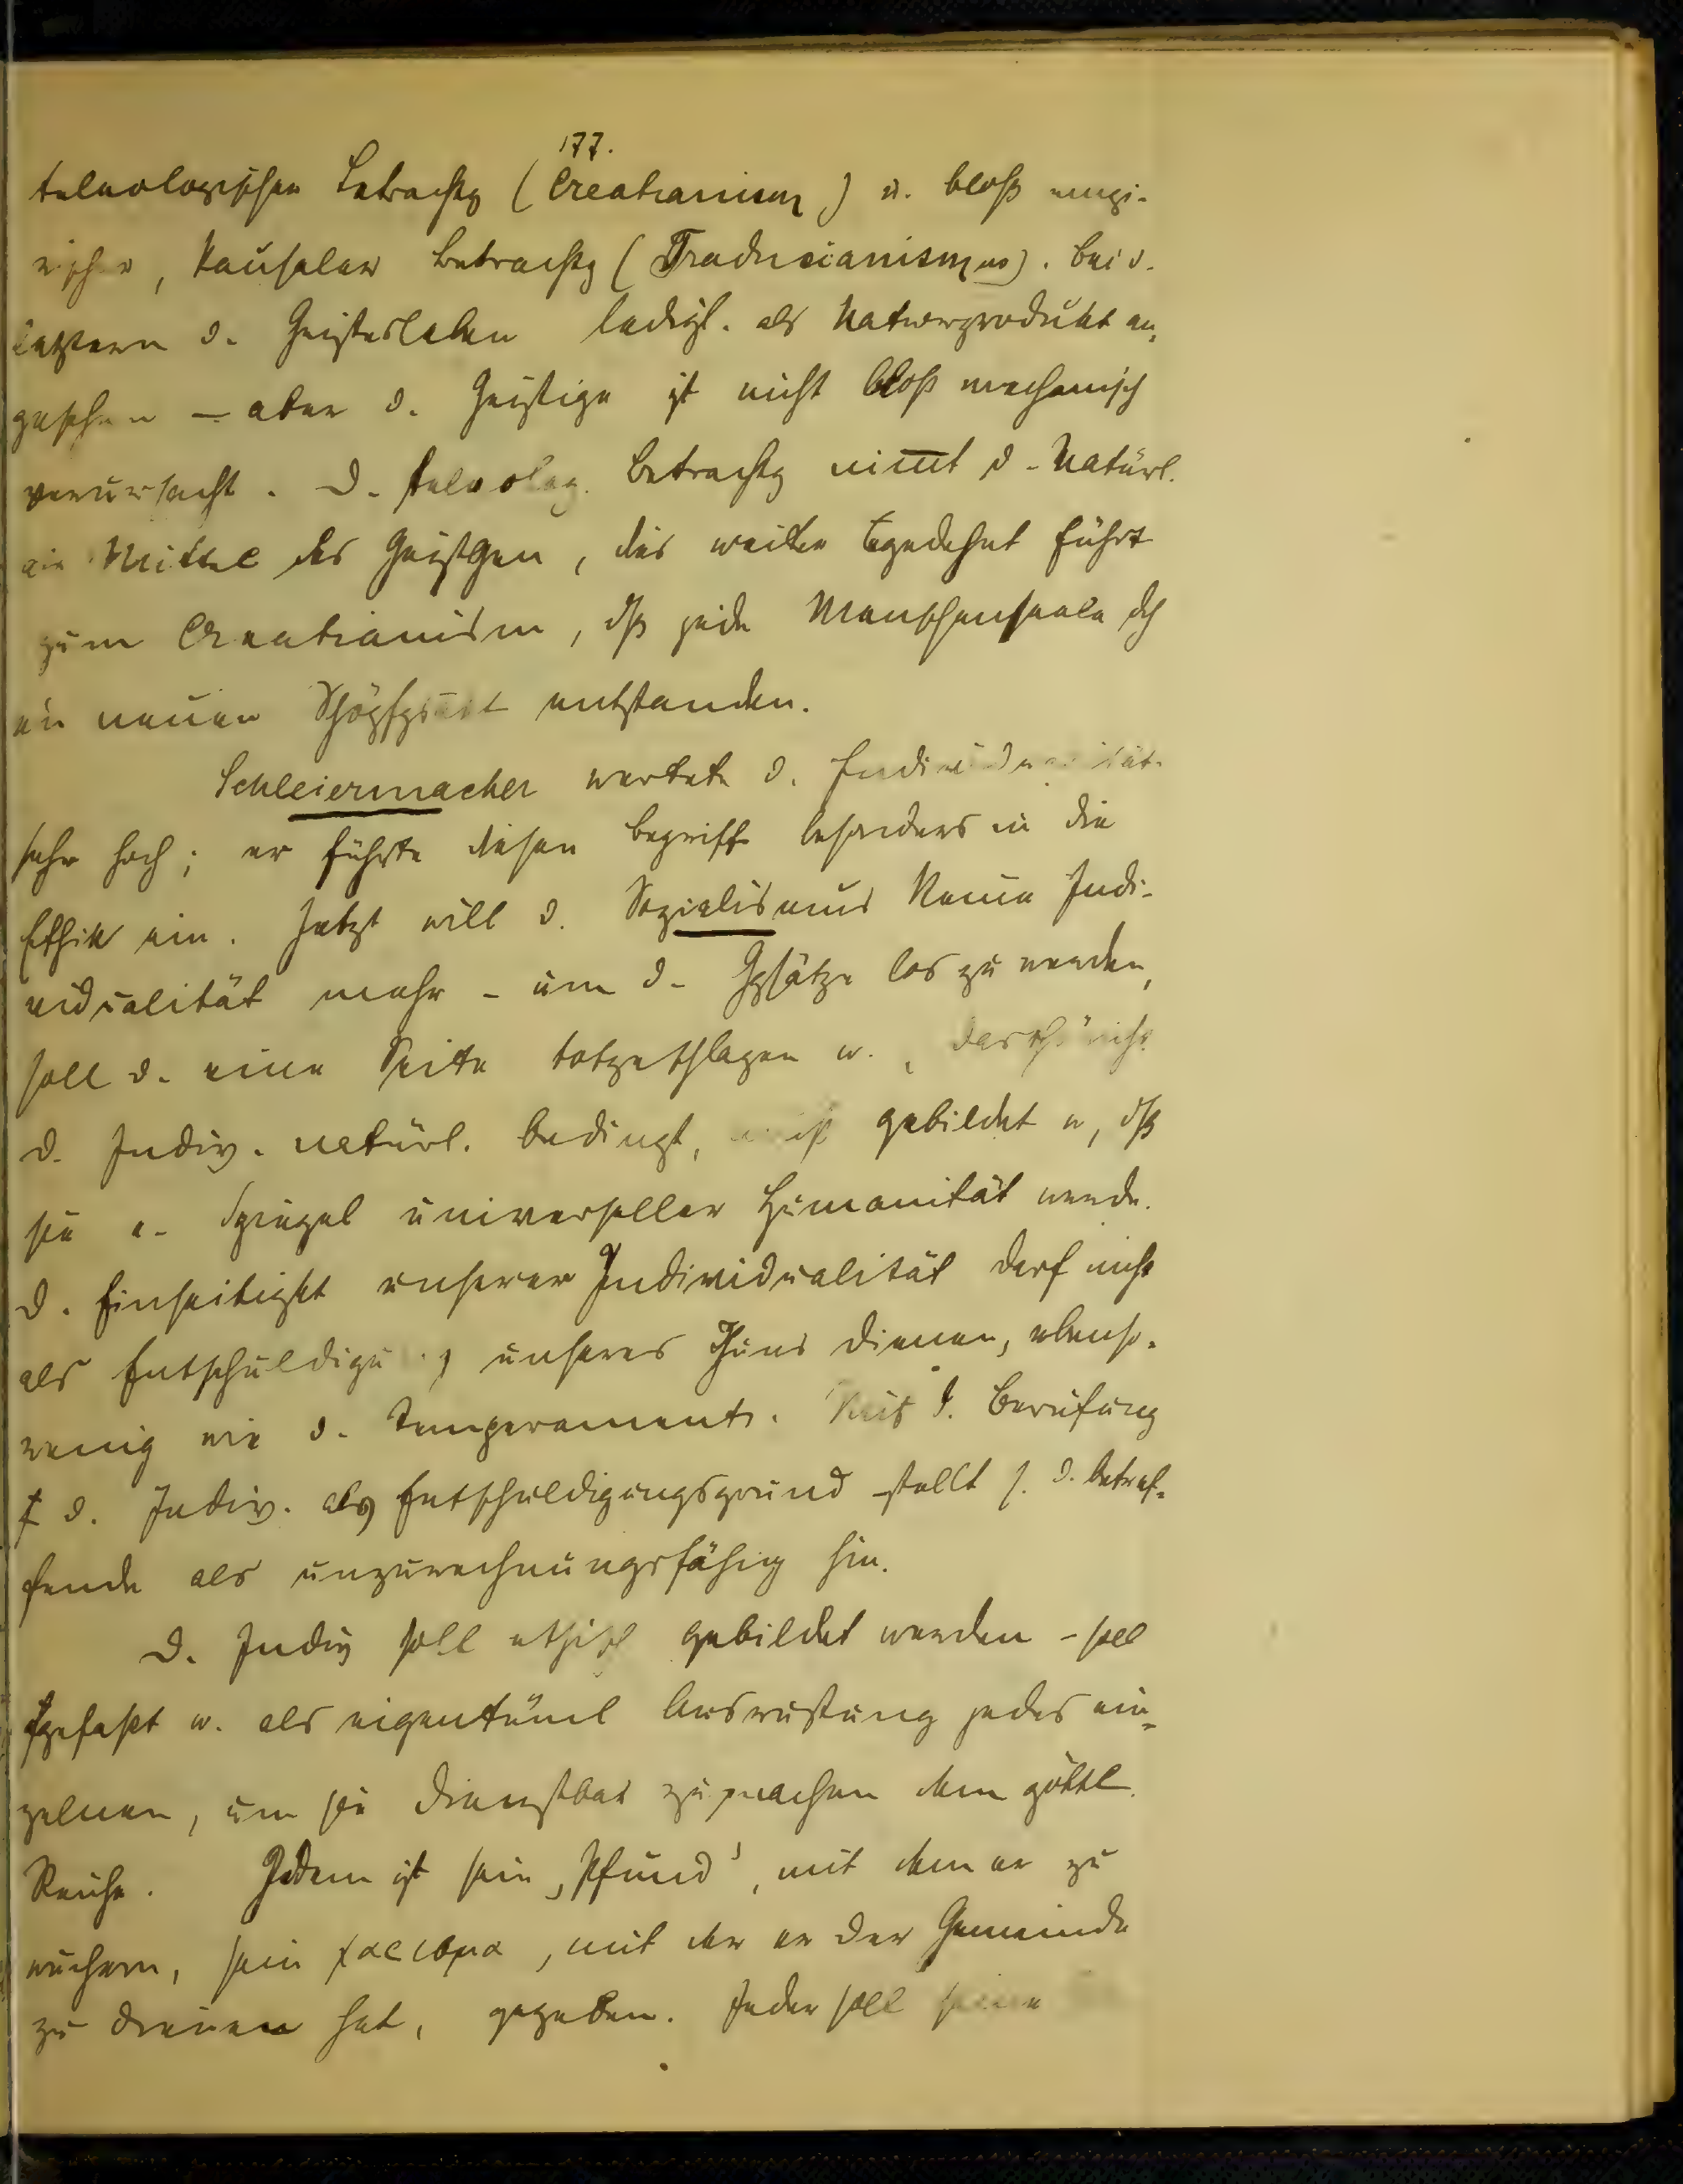 177.
teleologischen Betrachtg (Creatianism) u. bloß empi-
rischer, kausaler Betrachtg (Traducianismus). Bei d.
letztern d. Geistesleben ledigl. als Naturprodukt an-
gesehen — aber d. Geistige ist nicht bloß mechanisch
verursacht. D. teleolog. Betrachtg nimmt d. Natürl.
als Mittel des Geistgen, dies weiter ausgedehnt führt
zum Creatianism, dß jede Menschenseele dch
ein neuen Schöpfgsakt entstanden.
Schleiermacher wertete d. Individualität
sehr hoch; er führte diesen Begriff besonders in die
Ethik ein. Jetzt will d. Sozialismus keine Indi-
vidualität mehr - um d. Ggsätze los zu werden,
soll d. eine Seite totgeschlagen w.
d. Indiv. natürl. bedingt, muß gebildet w, dß
sie e. Spiegel universeller Humanität werde.
D. Einseitigkt unserer Individualität darf nicht
als Entschuldigung unseres Thuns dienen, ebenso-
wenig wie d. Temperament. Mit d. Berufung
auf d. Indiv. als Entschuldigungsgrund stellt s. d. betref-
fende als unzurechnungsfähig hin.
D. Indiv soll ethisch gebildet werden - soll
aufgefaßt w. als eigentüml Ausrüstung jedes ein-
zelnen, um sie dienstbar zu machen dem göttl.
Reiche. Jedem ist sein „Pfund", mit dem er zu
wuchern, sein χαρισμα, mit der er der Gemeinde
zu dienen hat, gegeben. Jeder soll seine